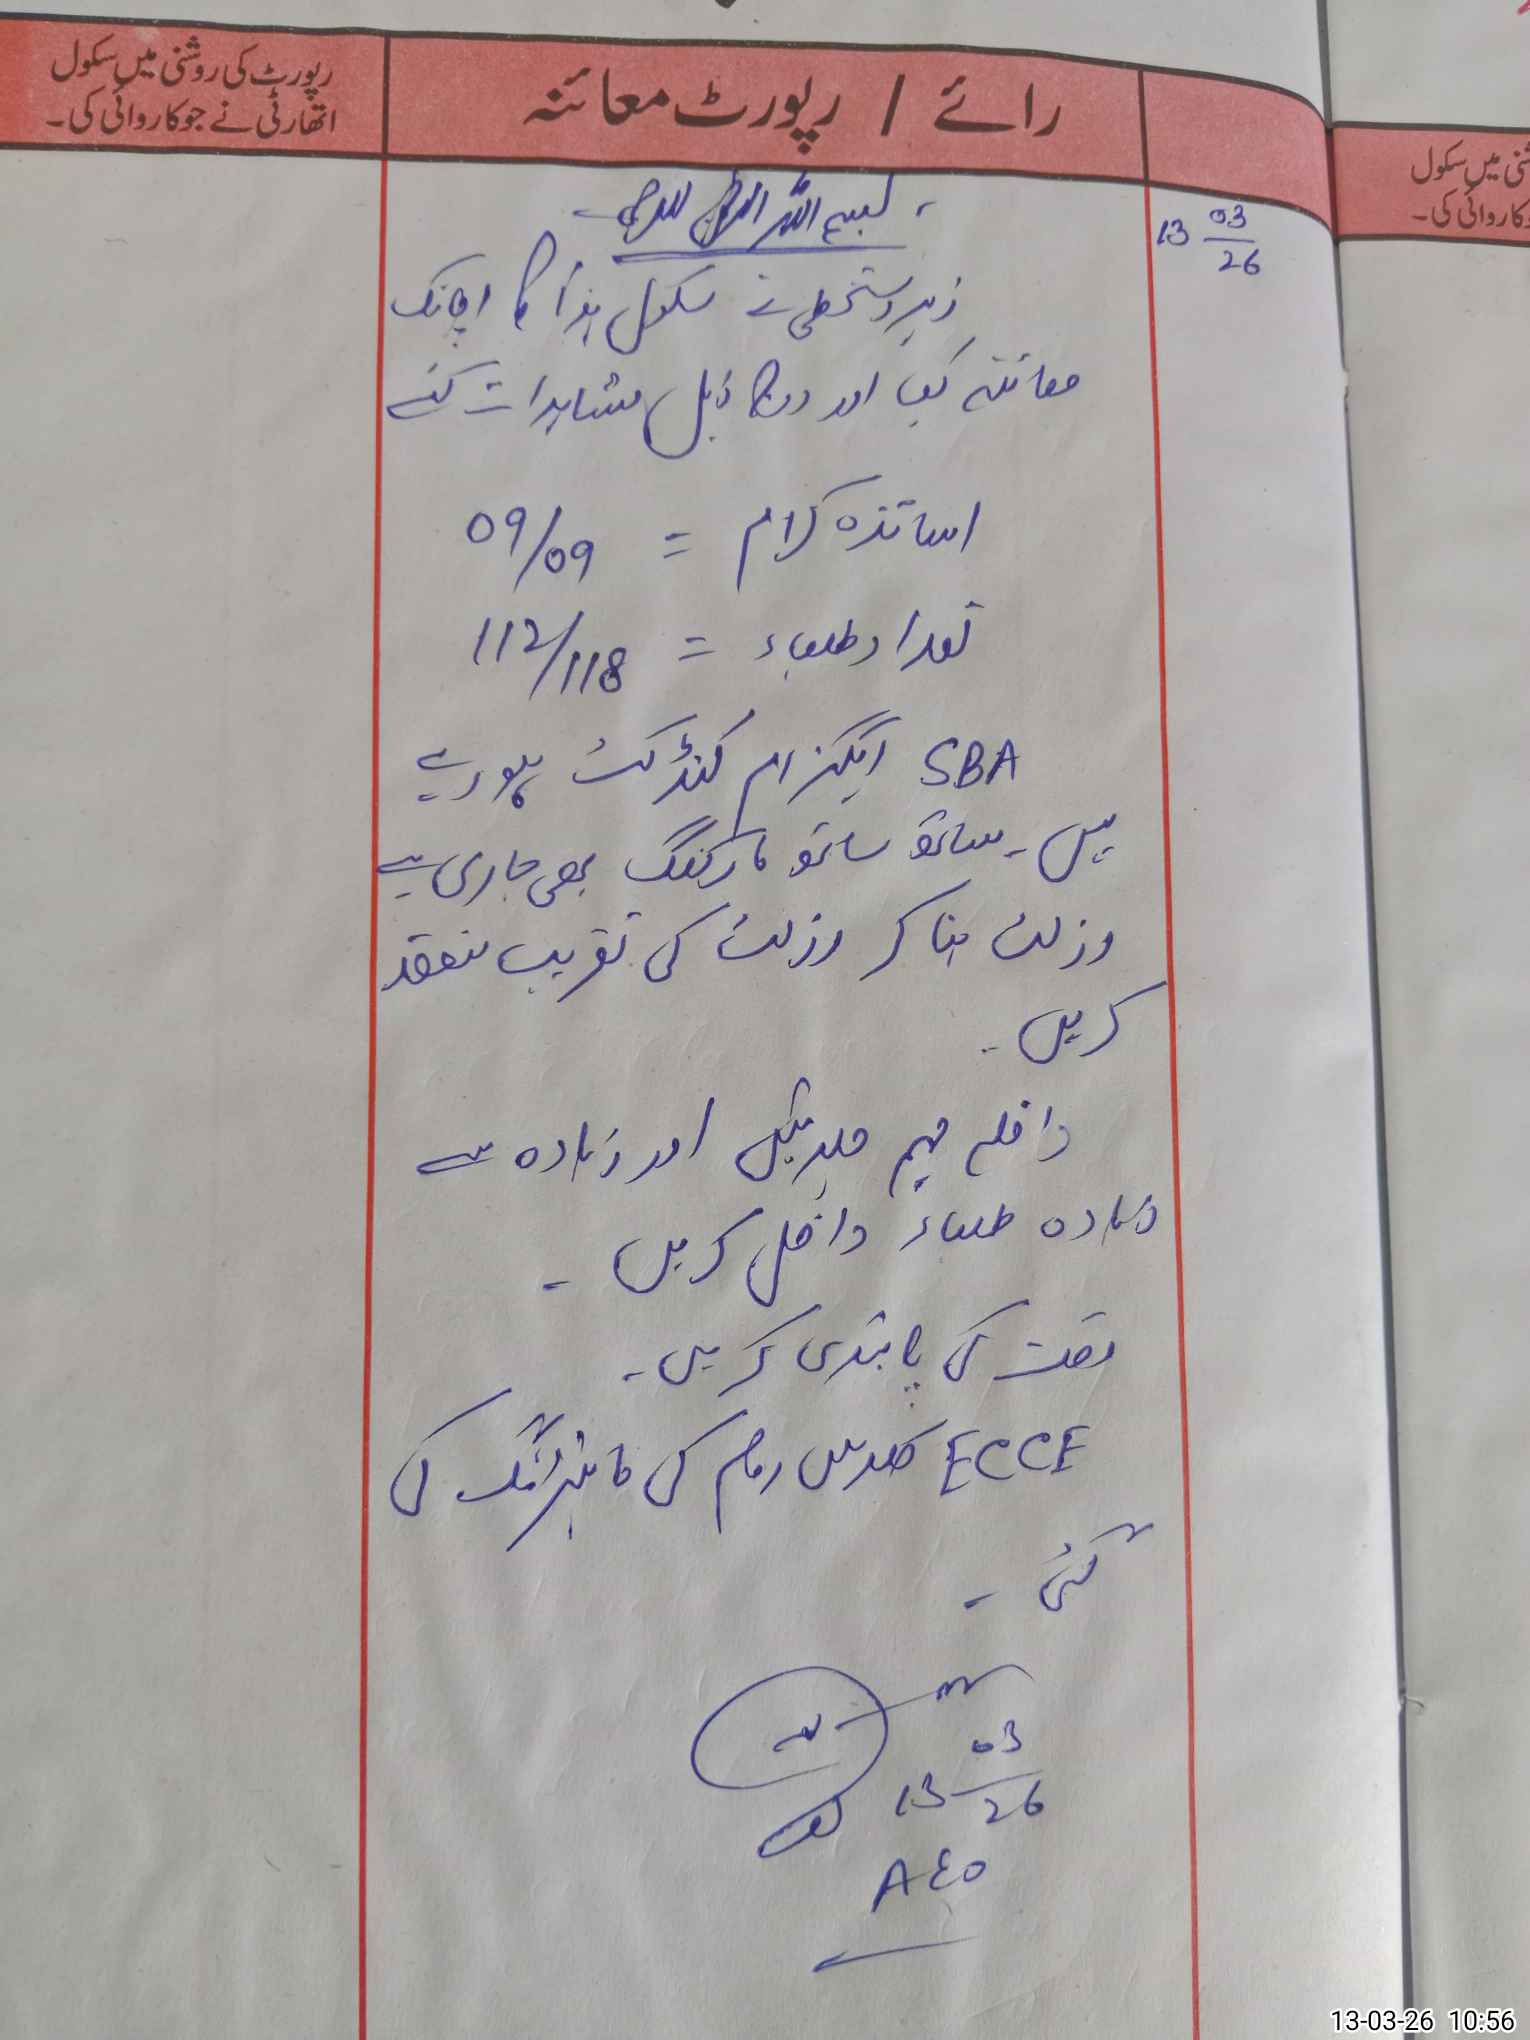 رپورٹ کی روشنی میں سکول
اتھارٹی نے جو کاروائی کی۔
رائے / رپورٹ معائنہ
شنی میں سکول
کاروائی کی۔
13 03/26
بسم اللہ الرحمن الرحیم
زیر دستخطی نے سکول ہذا کا اچانک
معائنہ کیا اور درج ذیل مشاہدات کئے
اساتذہ کرام = 09/09
تعداد طلباء = 112/118
SBA ایگزام کنڈکٹ ہو رہے
ہیں۔ ساتھ ساتھ مارکنگ بھی جاری ہے
رزلٹ بنا کر رزلٹ کی تقریب منعقد
کریں۔
داخلہ مہم چلائیں اور زیادہ سے
زیادہ طلباء داخل کریں۔
وقت کی پابندی کریں۔
ECCE کلاس روم کی مانیٹرنگ کی
گئی۔
13 03/26
AEO
13-03-26 10:56